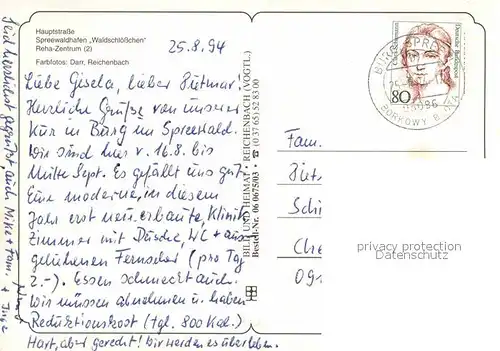 Hauptstraße
Spreewaldhafen „Waldschlößchen"
Reha-Zentrum (2)
Farbfotos: Darr, Reichenbach
25.8.94
Liebe Gisela, lieber Dietmar,
Herzliche Grüße von unserer
Kur in Burg im Spreewald.
Wir sind hier v. 16.8. bis
Mitte Sept. Es gefällt uns gut.
Eine moderne, in diesem
Jahr erst neu erbaute Klinik
Zimmer mit Dusche, WC + aus-
geliehenen Fernseher (pro Tag
2.-). Essen schmeckt auch.
Wir müssen abnehmen u. haben
Reduktionskost (tgl. 800 Kal.)
Hart, aber gerecht! Wir werden es überleben.
Seid herzlichst gegrüßt, auch Mike + Fam.
+ Inge
BILD UND HEIMAT · REICHENBACH (VOGTL.)
Bestell-Nr. 06 0675/03 · ☎ (0 37 65) 52 83 00
80
Deutsche Bundespost
BURG/SPREEW
03096
BORKOWY B
Fam.
Diet
Sch
Che
09
privacy protection
privacy protection